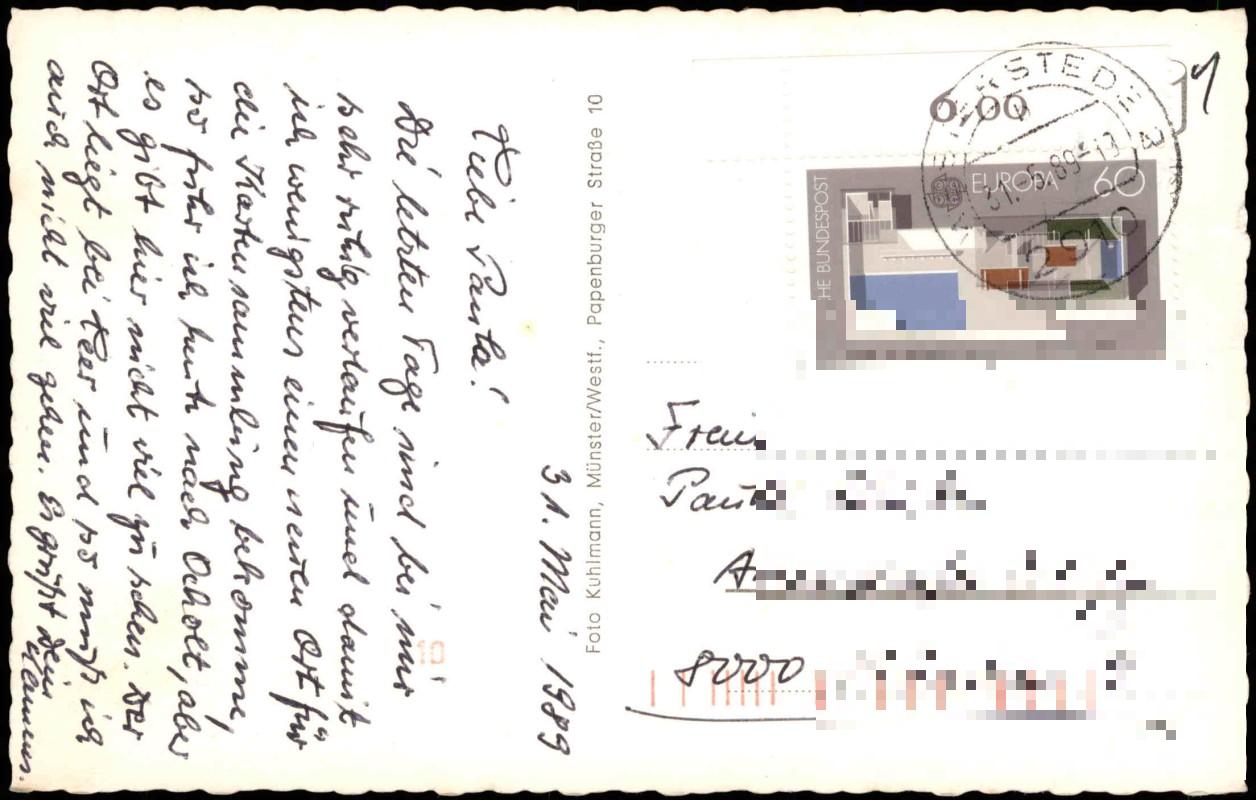 31. Mai 1989
Liebe Pauta!
Die letzten Tage sind bei mir
sehr ruhig verlaufen und damit
ich wenigstens einen neuen Ort für
die Kartensammlung bekomme,
so fuhr ich heute nach Ocholt, aber
es gibt hier nicht viel zu sehen. Der
Ort liegt bei Leer und so muß ich
auch nicht viel gehen. Es grüßt Dein
Foto Kuhlmann, Münster/Westf., Papenburger Straße 10
6,00
31.-5.89-13
2910
EUROPA 60
HE BUNDESPOST
8000
10